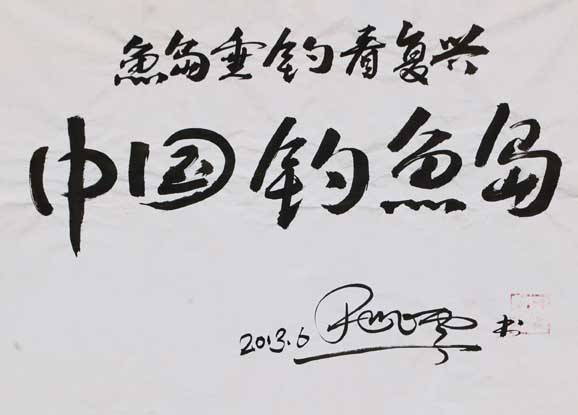 魚島垂钓看复兴
中国钓魚島
2013.6 书